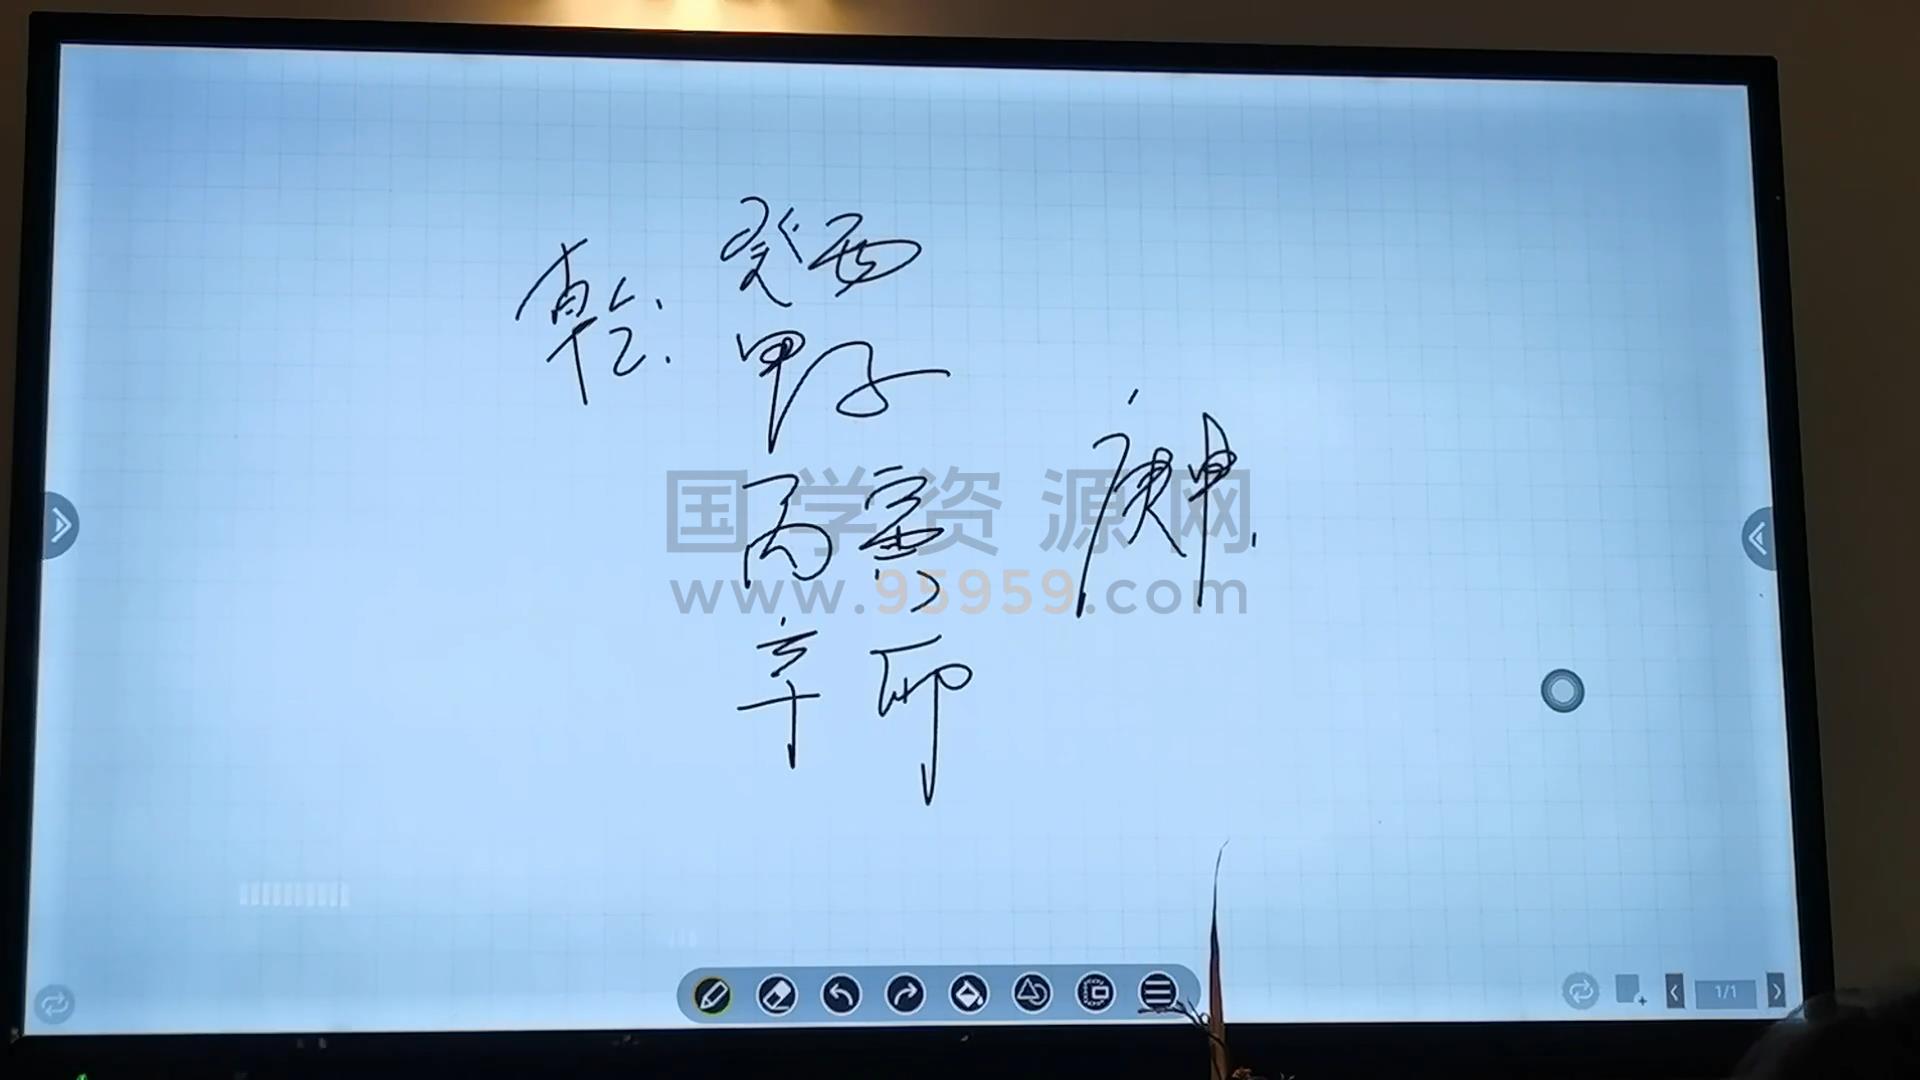 乾:
癸酉
甲子
丙寅
辛卯
庚申
国学资源网
www.95959.com
1/1